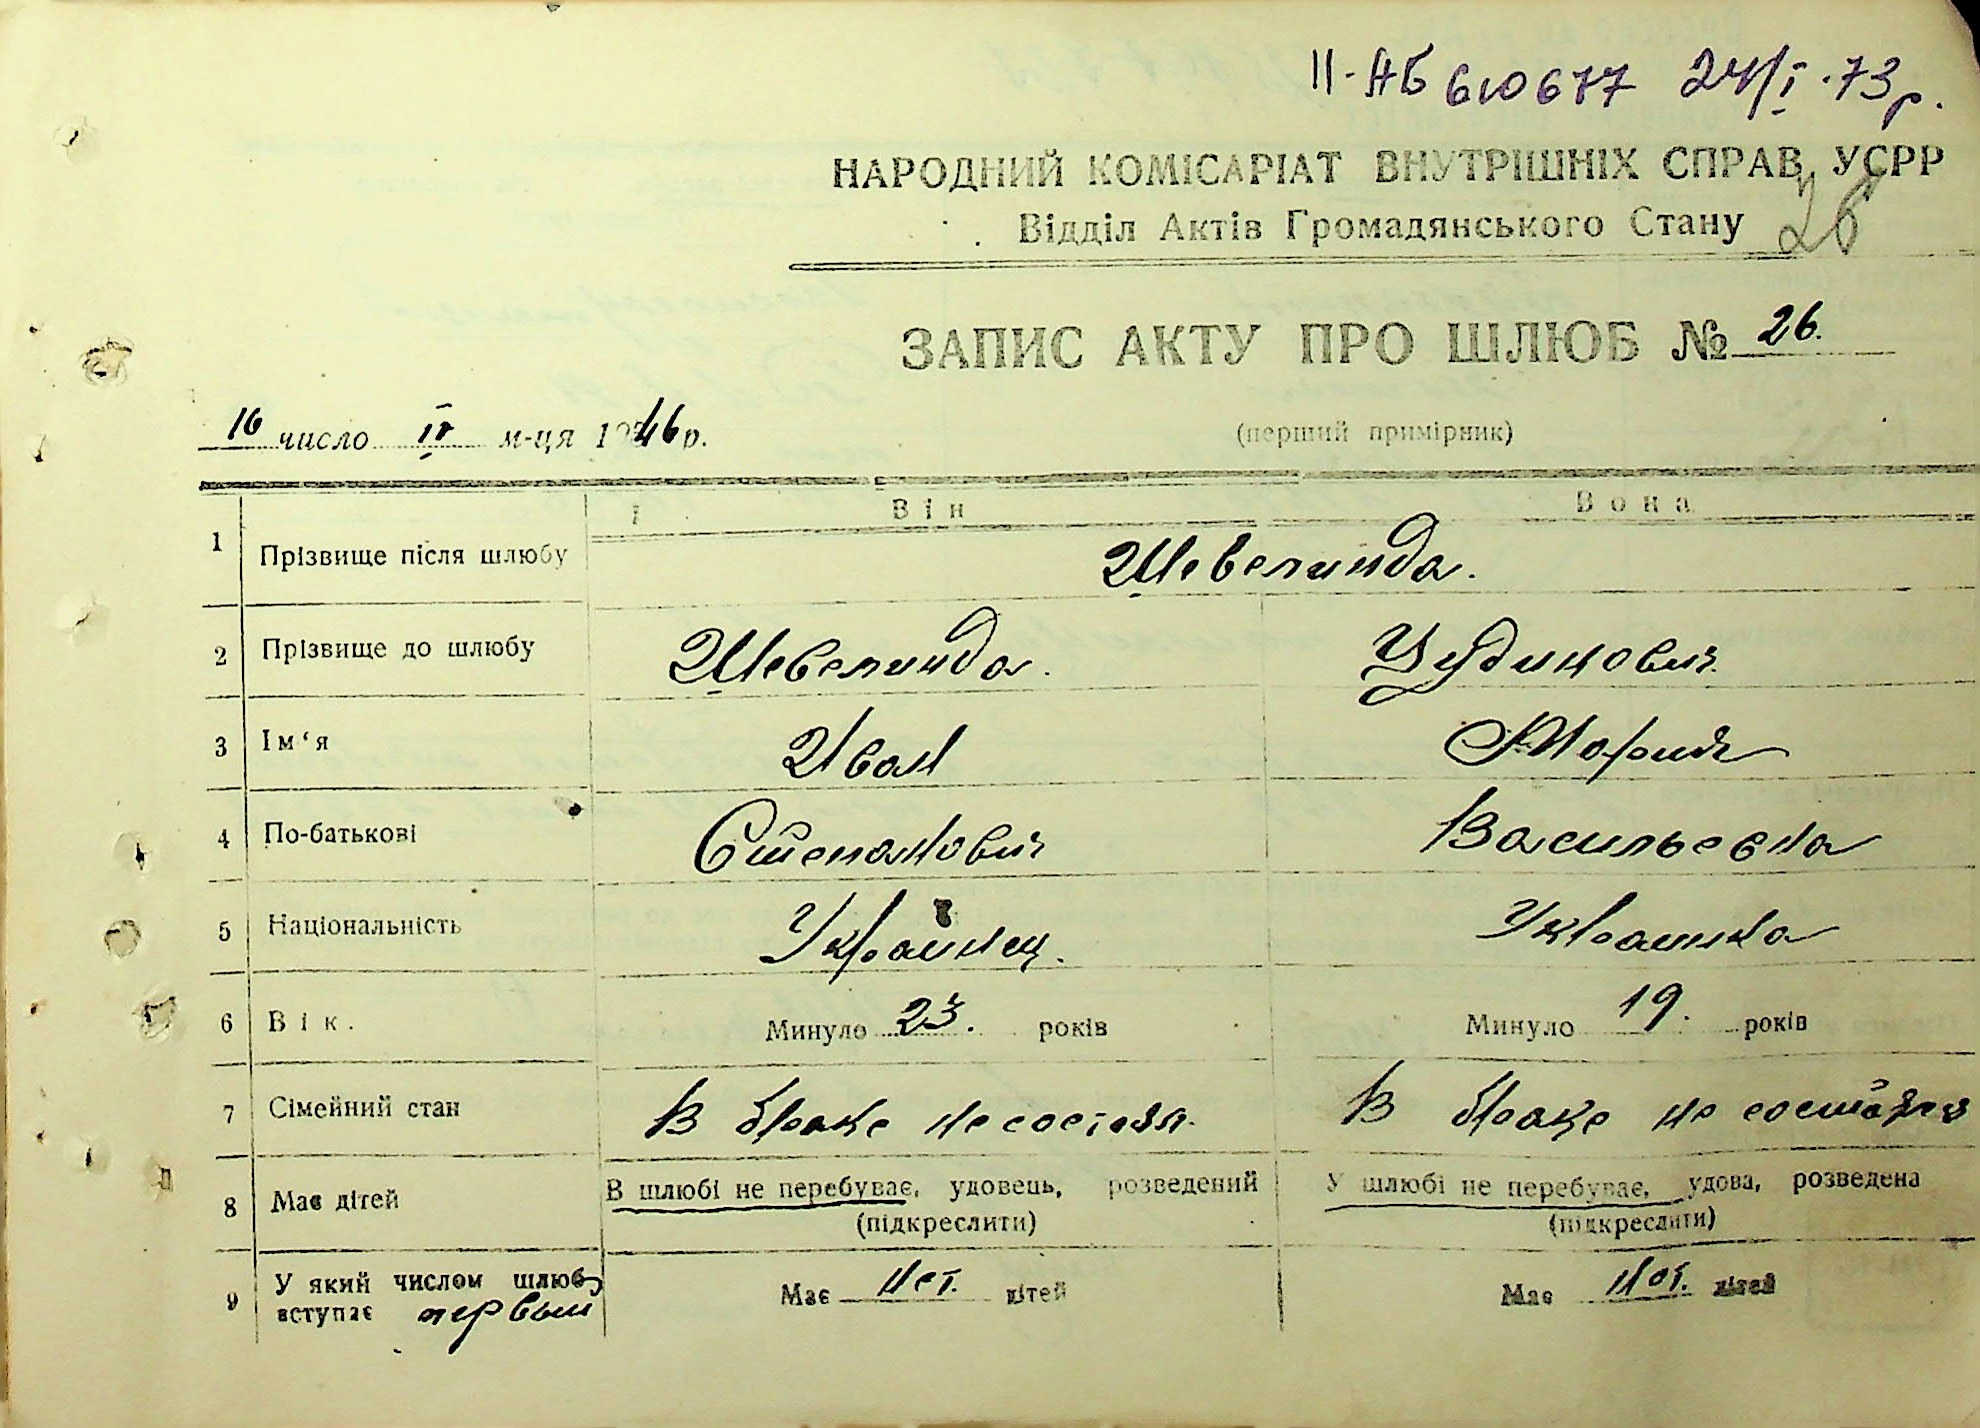 ІІ-АБ 610677 24/I-73 р.
НАРОДНИЙ КОМІСАРІАТ ВНУТРІШНІХ СПРАВ УСРР
Відділ Актів Громадянського Стану 26
ЗАПИС АКТУ ПРО ШЛЮБ № 26.
16 число IV м-ця 1946 р. (перший примірник)
Він Вона
1 Прізвище після шлюбу Шевелинда.
2 Прізвище до шлюбу Шевелинда.
3 Ім‘я Иван Мария
4 По-батькові Степанович Васильевна
5 Національність Украинец. Украинка
6 Вік. Минуло 23. років Минуло 19. років
7 Сімейний стан В браке не состоял. В браке не состояла
8 Має дітей В шлюбі не перебуває, удовець, розведений У шлюбі не перебуває, удова, розведена
(підкреслити) (підкреслити)
9 У який числом шлюб вступає первый Має нет. дітей Має нет. дітей